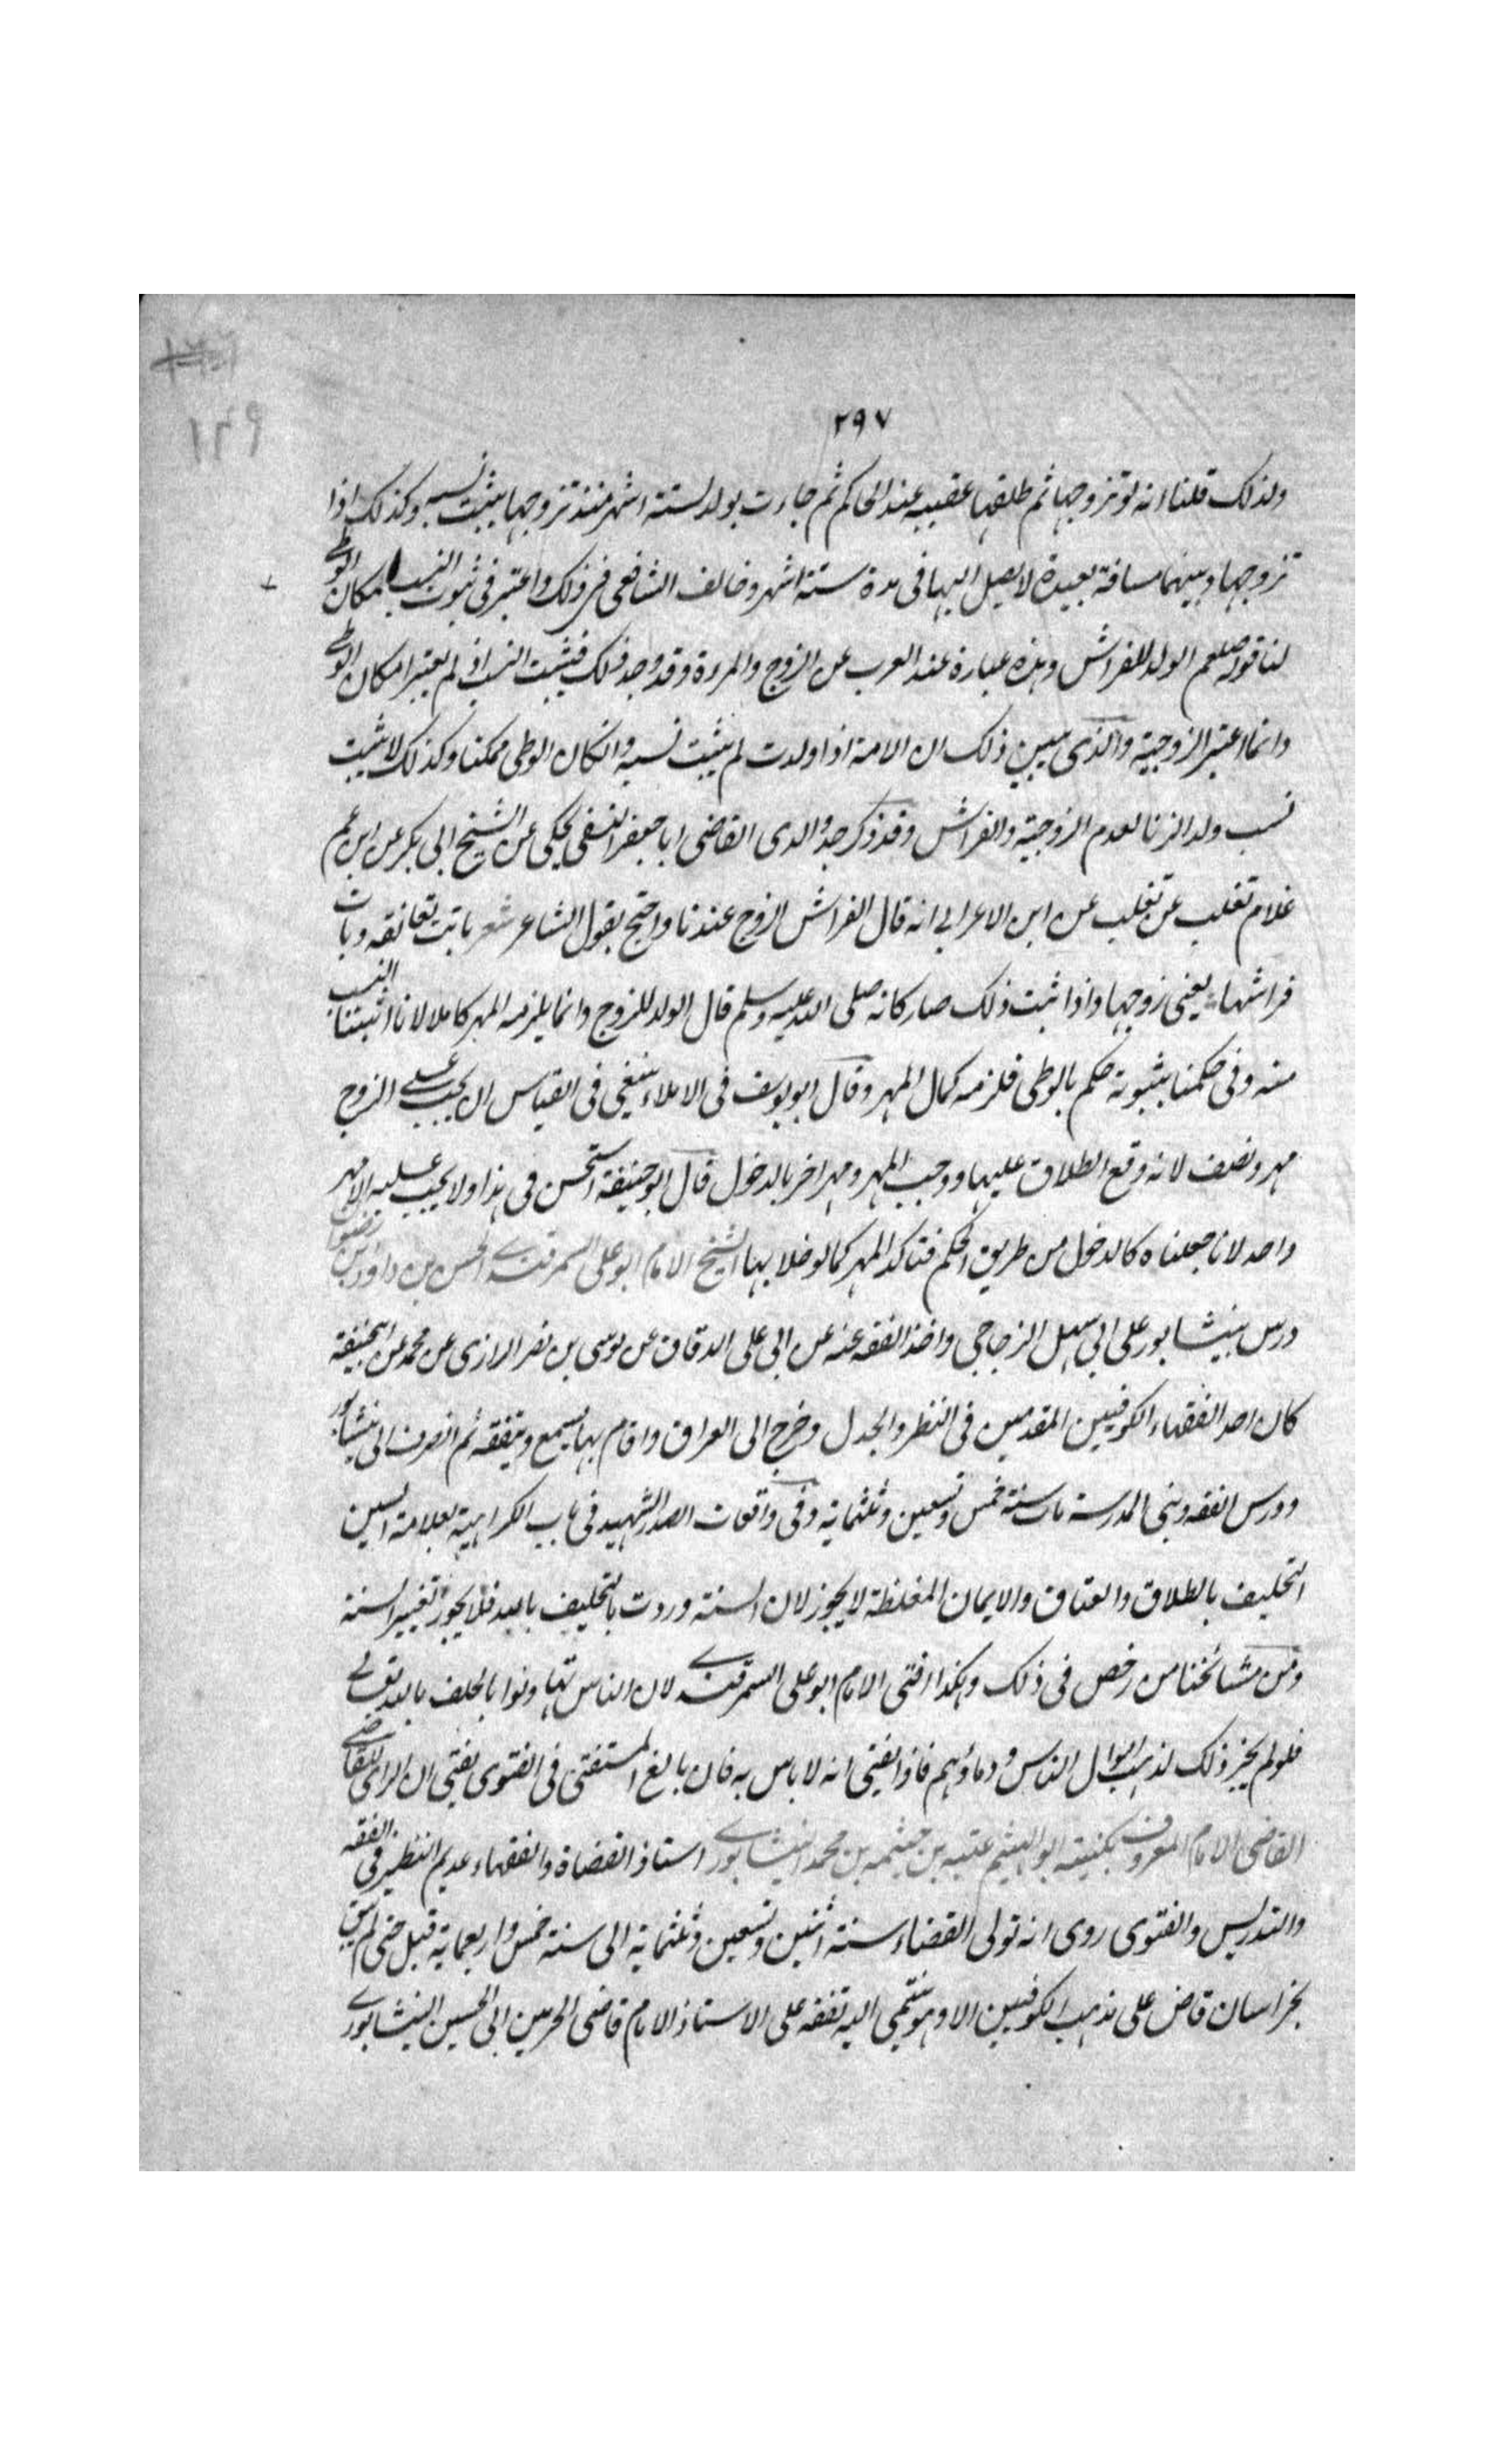 ٢٩٧
ولذلك قلنا انه لو تزوجها ثم طلقها عقيبه عند الحاكم ثم جاءت بولد لستة اشهر منذ تزوجها يثبت نسبه وكذلك اذا
تزوجها وبينهما مسافة بعيدة لا يصل اليها فى مدة ستة اشهر وخالف الشافعى فى ذلك واعتبر فى ثبوت النسب امكان الوطى
لنا قوله صلعم الولد للفراش وهذه عبارة عند العرب عن الزوج والمروة وقد وجد ذلك فيثبت النسب اذ لم يعتبر امكان الوطى
وانما اعتبر الزوجية والذى يبين ذلك ان الامة اذا ولدت لم يثبت نسبه وان كان الوطى ممكنا وكذلك لا يثبت
نسب ولد الزنا لعدم الزوجية والفراش وقد ذكر جد والدى القاضى ابا جعفر النسفى يحكى عن الشيخ ابى بكر عن ابن عم
غلام تغلب عن تغلب عن ابن الاعرابى انه قال الفراش الزوج عندنا واحتج بقول الشاعر شعر باتت تعانقه وبات
فراشها يعنى زوجها واذا ثبت ذلك صار كانه صلى الله عليه وسلم قال الولد للزوج وانما يلزمه المهر كاملا لانا اثبتنا النسب
منه وفى حكمنا بثبوته حكم بالوطى فلزمه كمال المهر وقال ابو يوسف فى الاملاء ينبغى فى القياس ان يجب على الزوج
مهر ونصف لانه وقع الطلاق عليها ووجب المهر ومهر اخر بالدخول قال ابو حنيفة استحسن فى هذا ولا يجب عليه الا مهر
واحد لانا جعلناه كالدخول من طريق الحكم فتاكد المهر كما لو خلا بها الشيخ الامام ابو على السمرقندى الحسن بن داود بن رضوان
درس بنيشابور على ابى سهل الزجاجى واخذ الفقه عنه عن ابى على الدقاق عن موسى بن نصر الرازى عن محمد عن ابيحنيفة
كان احد الفقهاء الكوفيين المقدمين فى النظر والجدل وخرج الى العراق واقام بها يسمع ويتفقه ثم انصرف الى نيشابور
ودرس الفقه وبنى المدرسة مات سنة خمس وتسعين وثلثمائة وفى واقعات الصدر الشهيد فى باب الكراهية بعلامة السين
التحليف بالطلاق والعتاق والايمان المغلظة لا يجوز لان السنة وردت بالتحليف بالله فلا يجوز تغيير السنة
ومن مشائخنا من رخص فى ذلك وهكذا افتى الامام ابو على السمرقندى لان الناس تهاونوا بالحلف بالله تعالى
فلو لم يجز ذلك لذهب اموال الناس ودماؤهم فاذا يفتى انه لا باس به فان بالغ المستفتى فى الفتوى يفتى ان الراى للقاضى
القاضى الامام المعروف بكنيته ابو الهيثم عتبه بن خيثمه بن محمد النيشابورى استاذ القضاة والفقهاء عديم النظير فى الفقه
والتدريس والفتوى روى انه تولى القضاء سنة اثنين وتسعين وثلثماية الى سنة خمس واربعماية قبل حتى لم يبق
بخراسان قاض على مذهب الكوفيين الا وهو ينتمى اليه تفقه على الاستاذ الامام قاضى الحرمين ابى الحسين النيشابورى